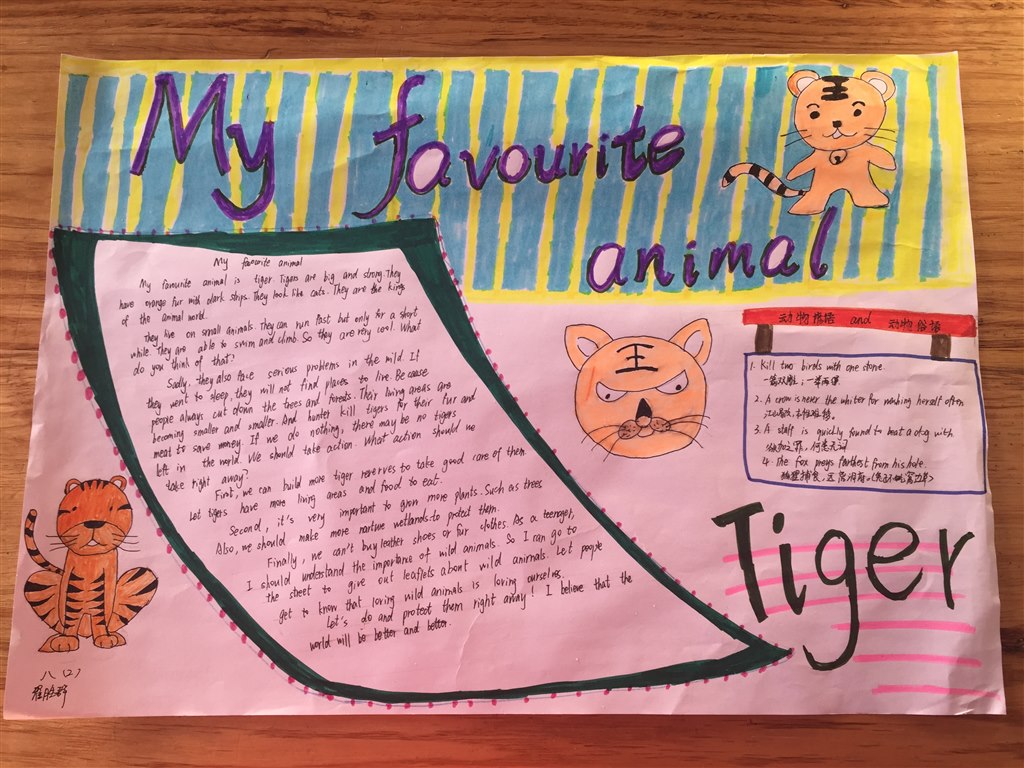 My favourite
animal
My favourite animal
My favourite animal is tiger. Tigers are big and strong. They
have orange fur with dark strips. They look like cats. They are the kings
of the animal world.
They live on small animals. They can run fast but only for a short
while. They are able to swim and climb. So they are very cool. What
do you think of that?
Sadly, they also face serious problems in the mild. If
they went to sleep, they will not find places to live. Because
people always cut down the trees and forests. Their living areas are
becoming smaller and smaller. And hunter kill tigers for their fur and
meat to save money. If we do nothing, there may be no tigers
left in the world. We should take action. What action should we
take right away?
First, we can build more tiger reserves to take good care of them.
Let tigers have more living areas and food to eat.
Second, it's very important to grow more plants. Such as trees
Also, we should make more narture wetlands to protect them.
Finally, we can't buy leather shoes or fur clothes. As a teenger,
I should understand the importance of wild animals. So I can go to
the street to give out leaflets about wild animals. Let people
get to know that loving wild animals is loving ourselves.
Let's do and protect them right away! I believe that the
world will be better and better.
动物谚语 and 动物俗语
1. Kill two birds with one stone.
一箭双雕；一举两得
2. A crow is never the whiter for washing herself often
江山易改，本性难移。
3. A staff is quickly found to beat a dog with.
欲加之罪，何患无词
4. The fox preys farthest from his hole.
狐狸捕食，远离洞府。(兔子不吃窝边草)
王
王
Tiger
八(2)